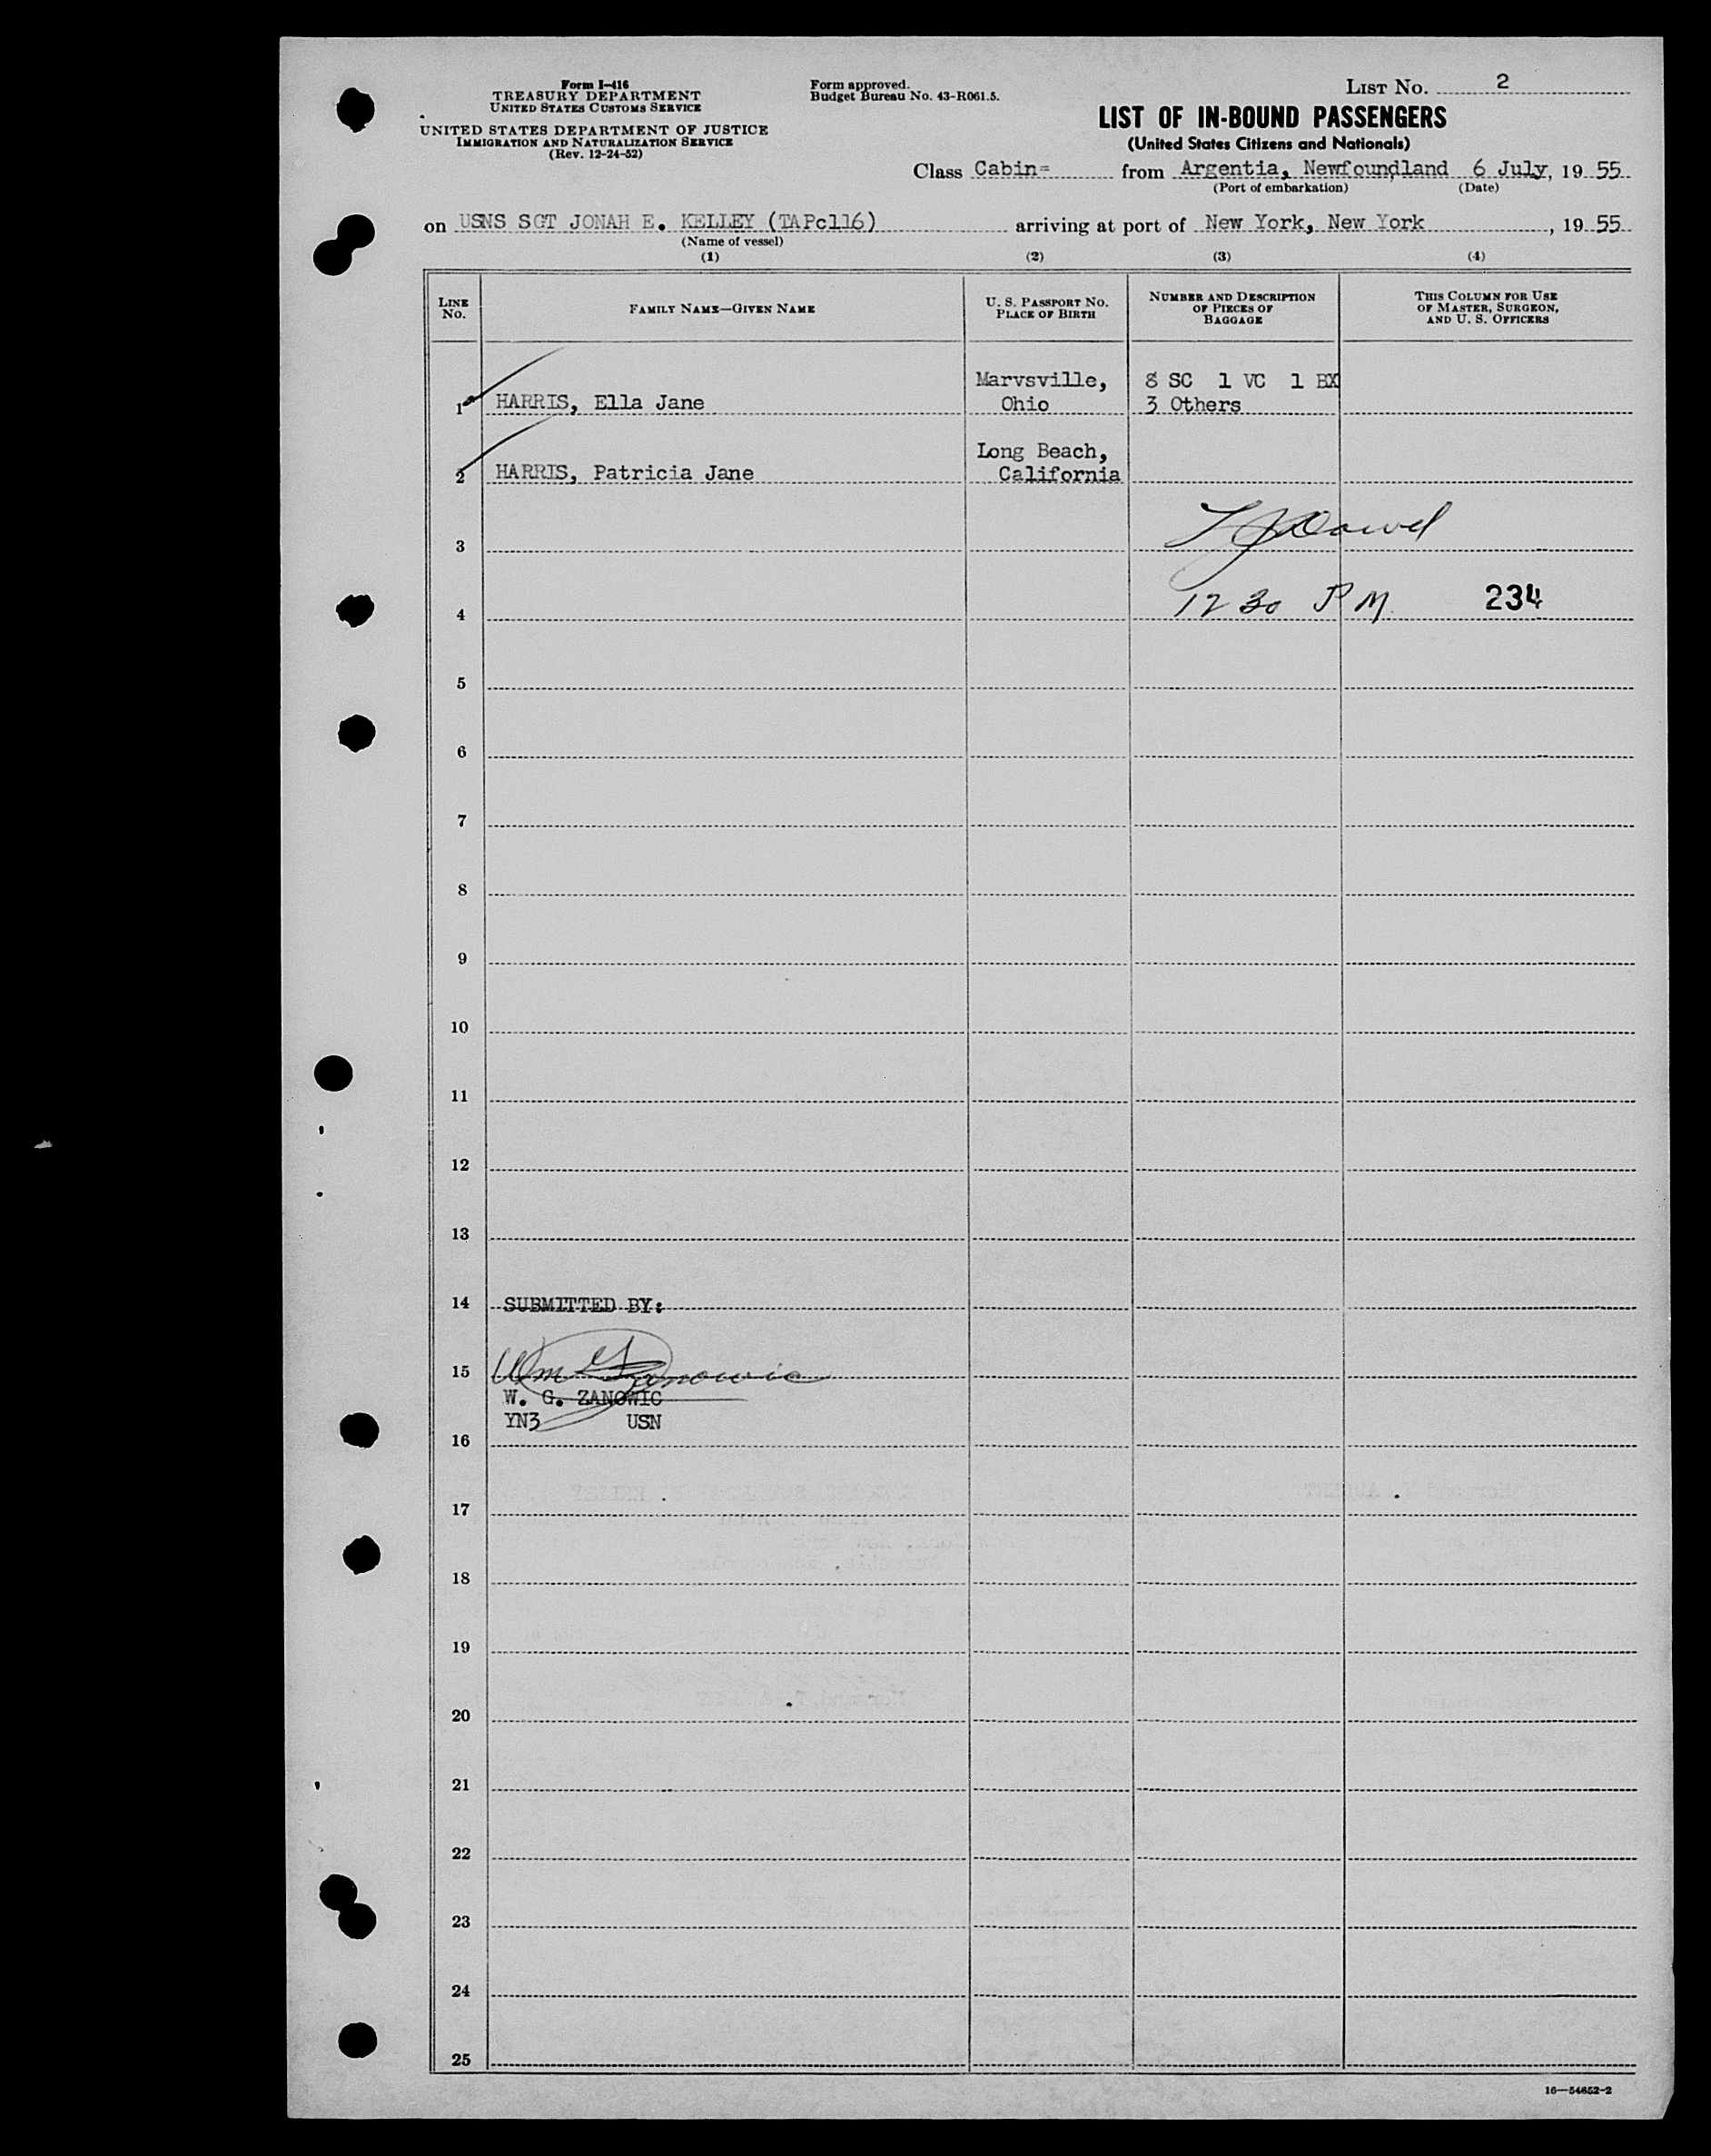 Form I-416
TREASURY DEPARTMENT
UNITED STATES CUSTOMS SERVICE
UNITED STATES DEPARTMENT OF JUSTICE
IMMIGRATION AND NATURALIZATION SERVICE
(Rev. 12-24-52)
Form approved.
Budget Bureau No. 43-R061.5.
LIST No. 2
LIST OF IN-BOUND PASSENGERS
(United States Citizens and Nationals)
Class Cabin= from Argentia, Newfoundland 6 July, 19 55
(Port of embarkation) (Date)
on USNS SGT JONAH E. KELLEY (TAPc116) arriving at port of New York, New York, 19 55
(Name of vessel)
(1) (2) (3) (4)
LINE No. FAMILY NAME—GIVEN NAME U. S. PASSPORT NO. PLACE OF BIRTH NUMBER AND DESCRIPTION OF PIECES OF BAGGAGE THIS COLUMN FOR USE OF MASTER, SURGEON, AND U. S. OFFICERS
Marvsville, 8 SC 1 VC 1 BX
1 HARRIS, Ella Jane Ohio 3 Others
Long Beach,
2 HARRIS, Patricia Jane California
3
4 12 30 P M. 234
5
6
7
8
9
10
11
12
13
14 SUBMITTED BY:
15 Wm G Zanowic
W. G. ZANOWIC
YN3 USN
16
17
18
19
20
21
22
23
24
25
16—54652-2